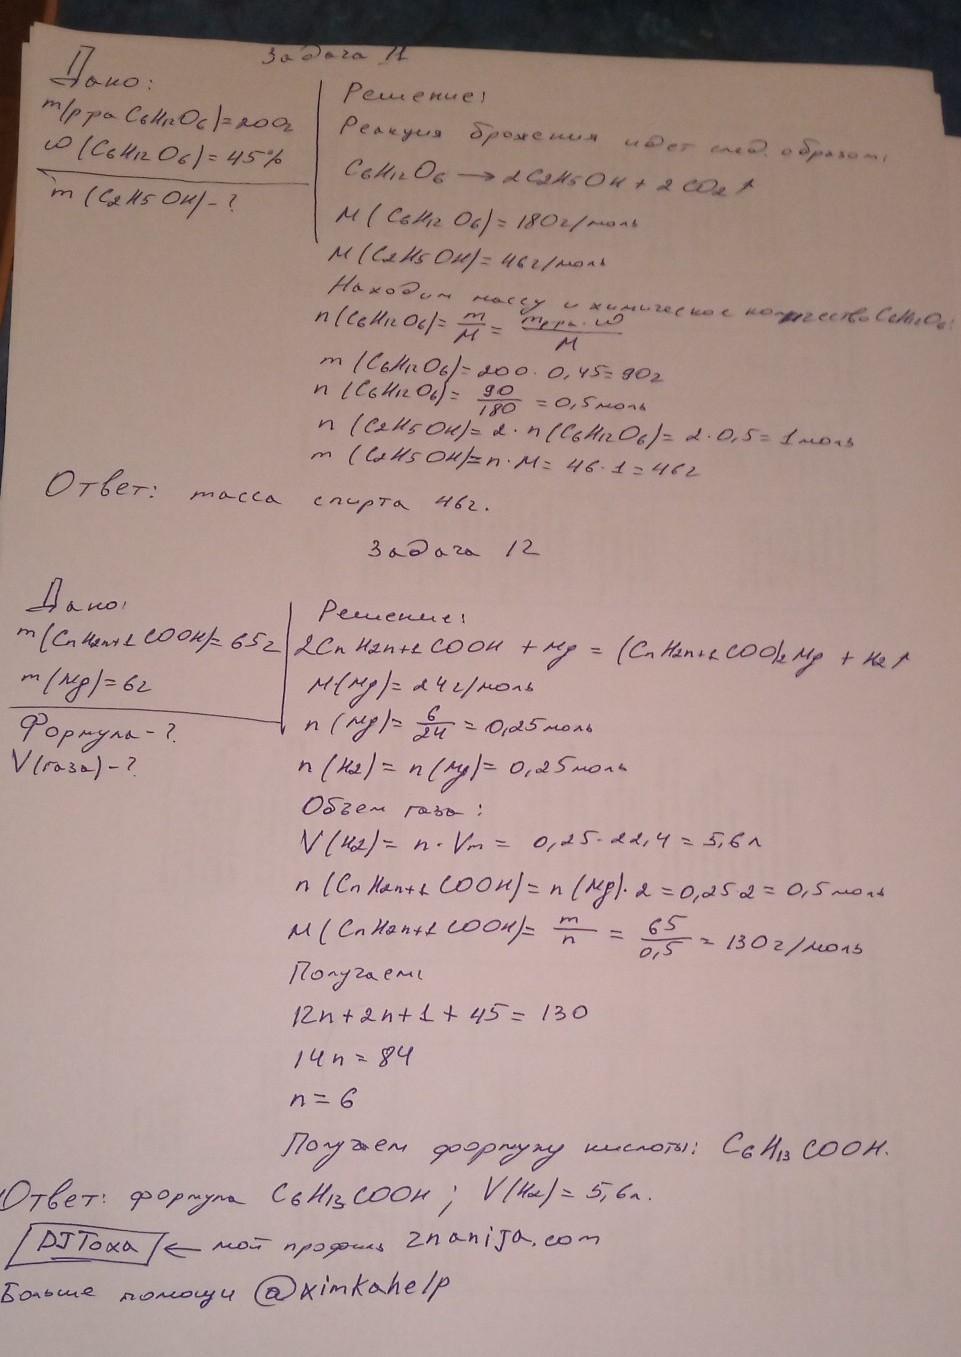 Задача 11
Дано:
m(р-ра C6H12O6)=200г
ω(C6H12O6)=45%
m(C2H5OH)-?
Решение:
Реакция брожения идет след. образом:
C6H12O6 → 2C2H5OH + 2CO2↑
M(C6H12O6)=180г/моль
M(C2H5OH)=46г/моль
Находим массу и химическое количество C6H12O6:
n(C6H12O6)= m/M = mр-ра·ω/M
m(C6H12O6)=200·0,45=90г
n(C6H12O6)= 90/180 =0,5моль
n(C2H5OH)=2·n(C6H12O6)=2·0,5=1моль
m(C2H5OH)=n·M=46·1=46г
Ответ: масса спирта 46г.
Задача 12
Дано:
m(CnH2n+1COOH)=65г
m(Mg)=6г
Формула-?
V(газа)-?
Решение:
2CnH2n+1COOH + Mg = (CnH2n+1COO)2Mg + H2↑
M(Mg)=24г/моль
n(Mg)= 6/24 =0,25моль
n(H2)=n(Mg)=0,25моль
Объем газа:
V(H2)= n·Vm = 0,25·22,4=5,6л
n(CnH2n+1COOH)=n(Mg)·2=0,25·2=0,5моль
M(CnH2n+1COOH)= m/n = 65/0,5 =130г/моль
Получаем:
12n+2n+1+45=130
14n=84
n=6
Получаем формулу кислоты: C6H13COOH.
Ответ: формула C6H13COOH; V(H2)=5,6л.
DJToxa ← мой профиль znanija.com
Больше помощи @ximkahelp